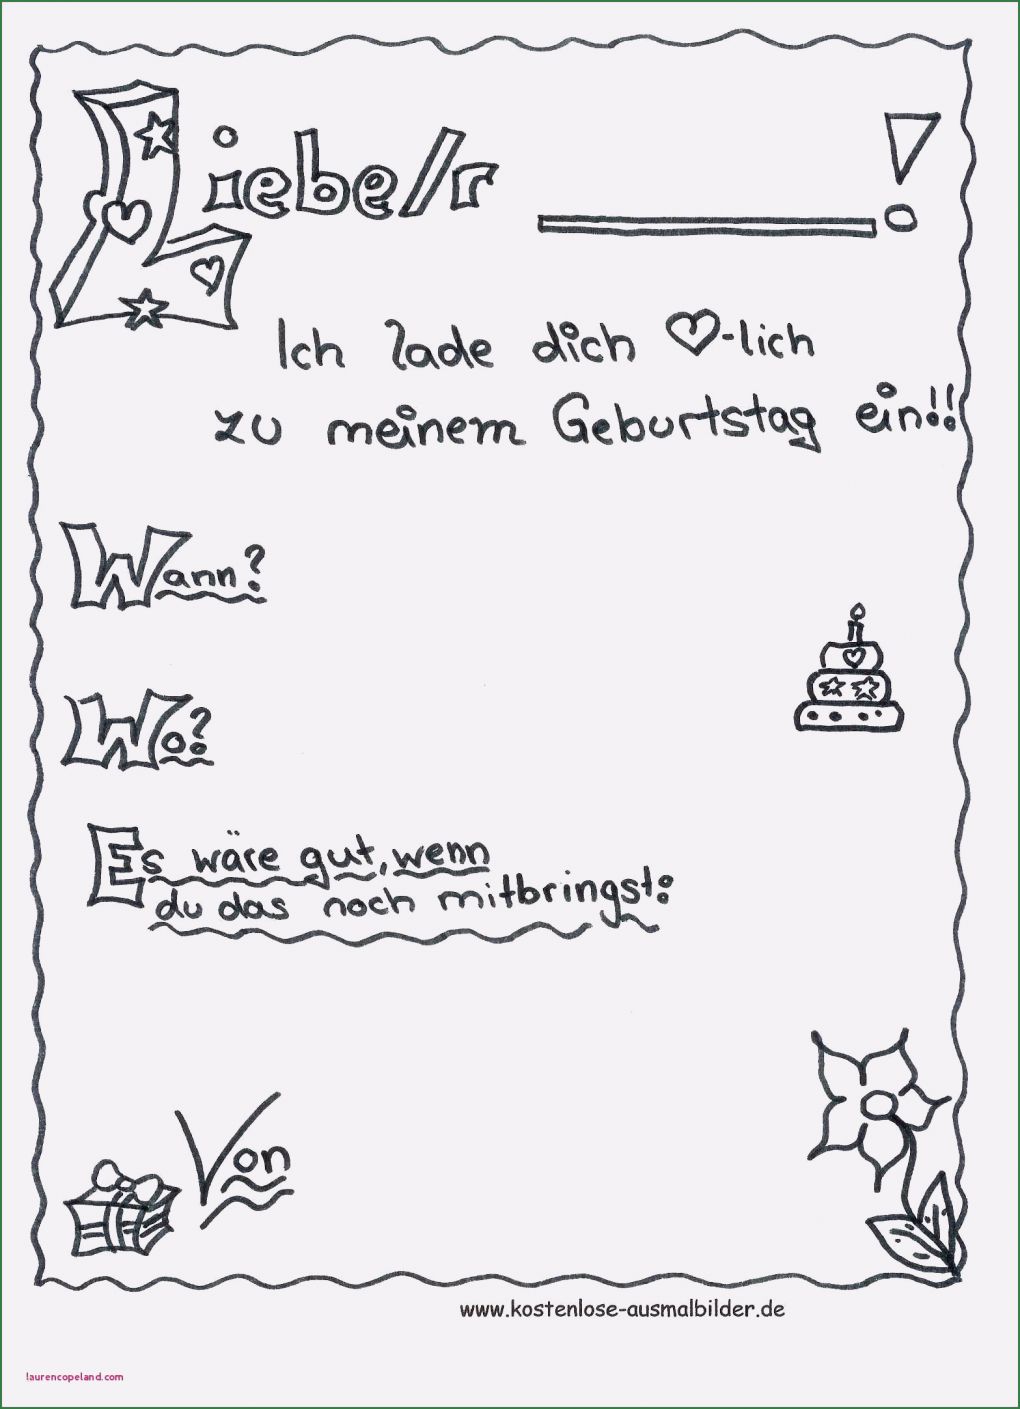 Liebe/r ________!
Ich lade dich ♡-lich
zu meinem Geburtstag ein!!
Wann?
Wo?
Es wäre gut, wenn
du das noch mitbringst:
Von
www.kostenlose-ausmalbilder.de
laurencopeland.com